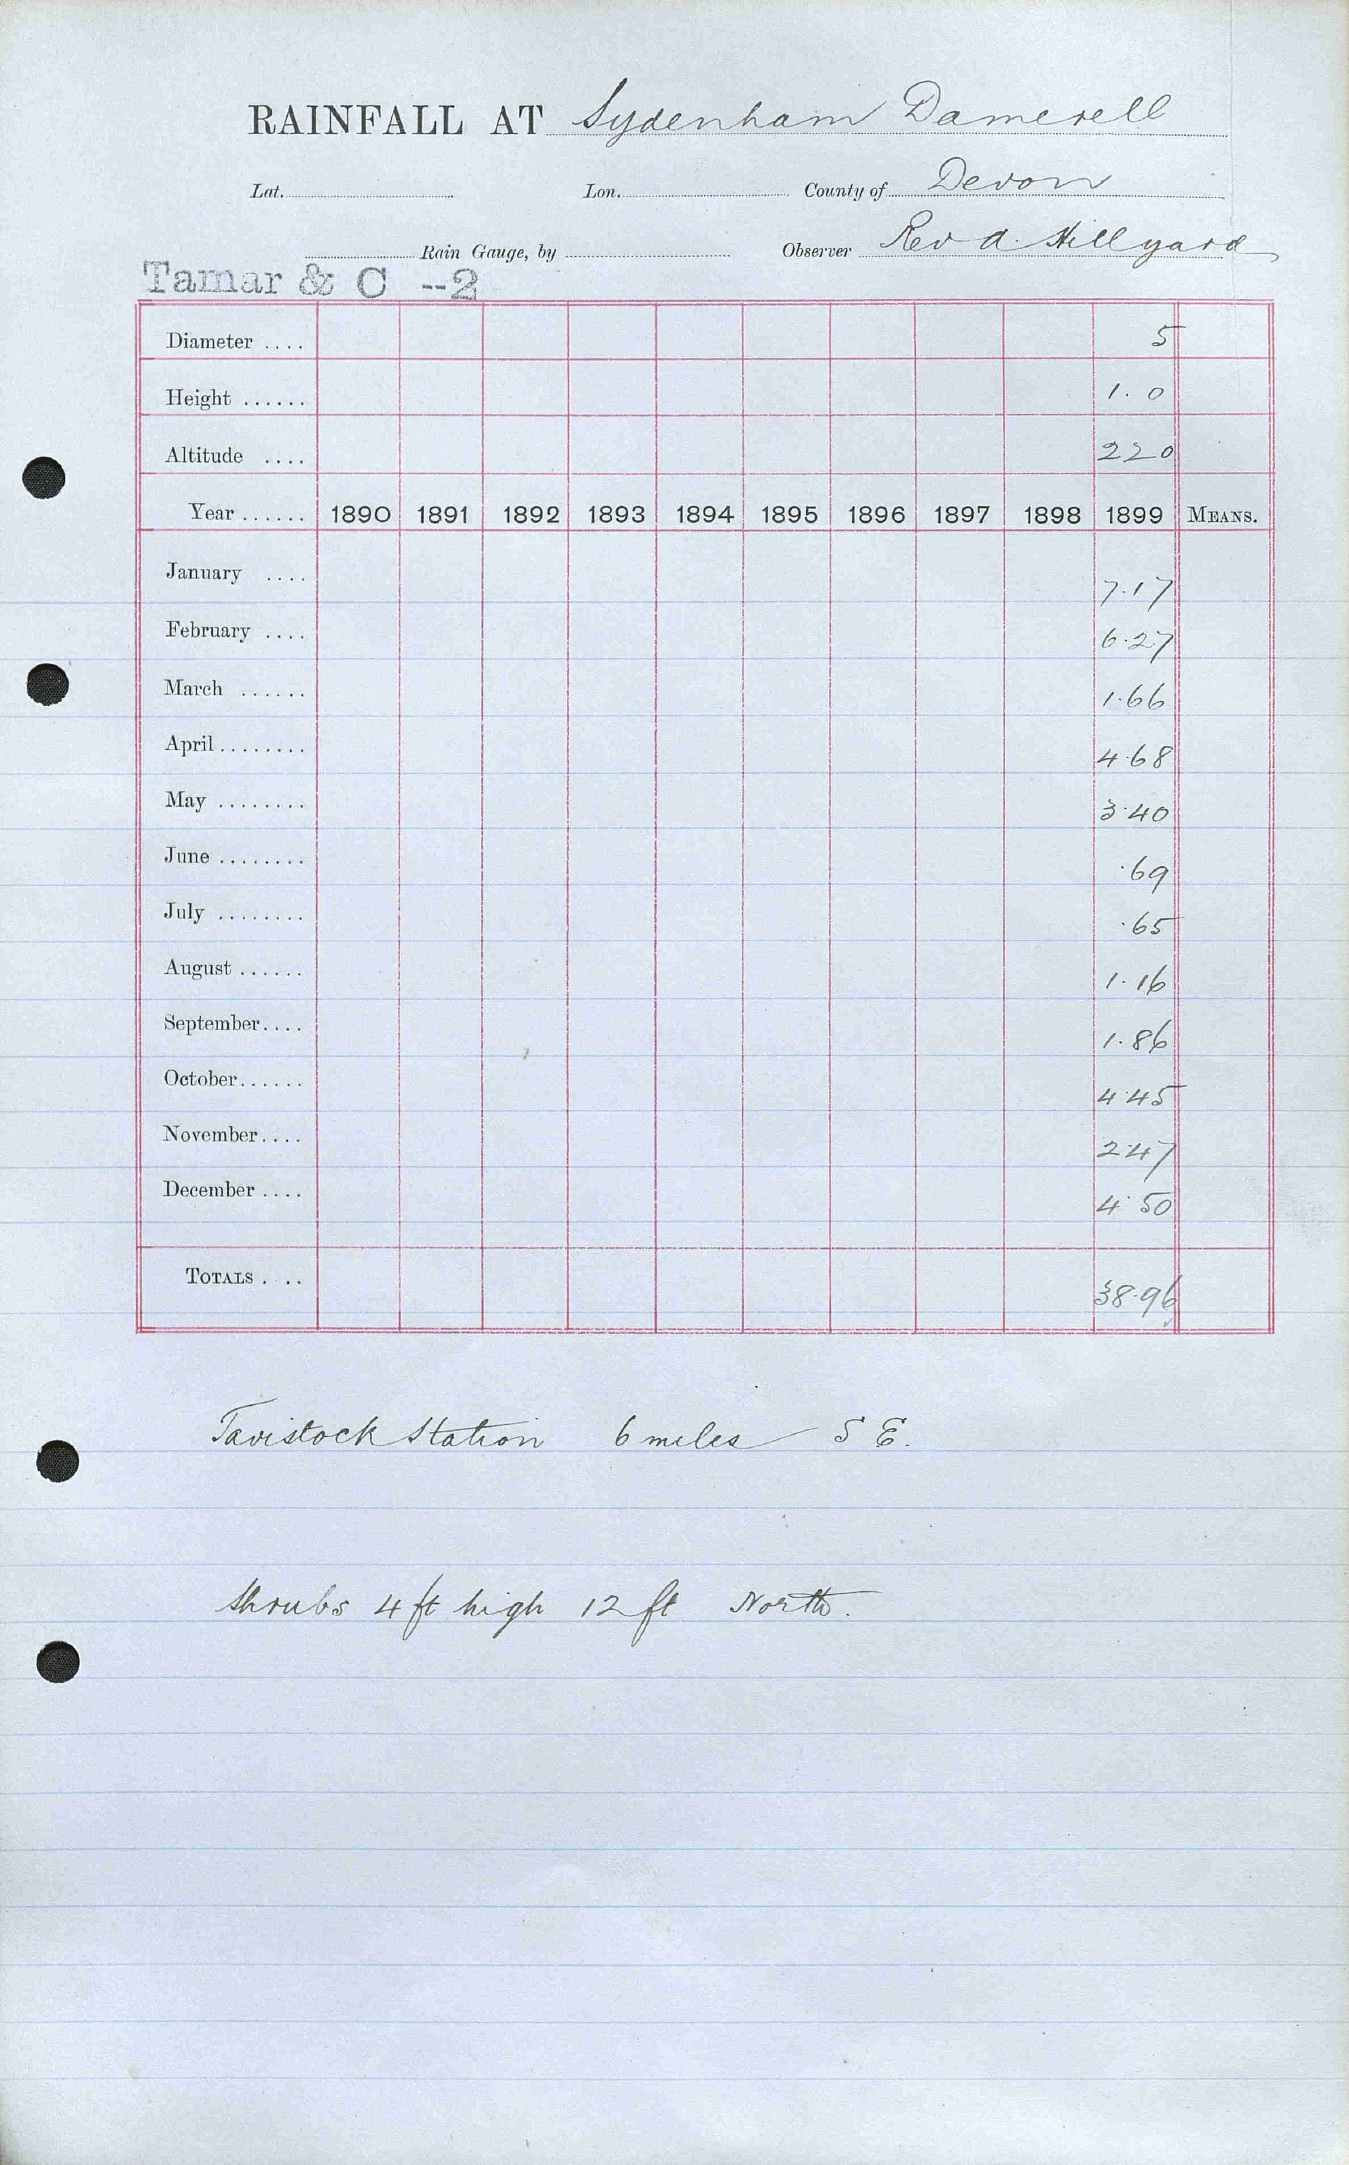 RAINFALL AT Sydenham Damerell
Lat. Lon. County of Devon
Rain Gauge, by Observer Rev A. Hillyard
Tamar & C --2
Diameter .... 5
Height ...... 1. 0
Altitude .... 220
Year ...... 1890 1891 1892 1893 1894 1895 1896 1897 1898 1899 MEANS.
January .... 7.17
February .... 6.27
March ...... 1.66
April ........ 4.68
May ........ 3.40
June ........ .69
July ........ .65
August ...... 1.16
September.... 1.86
October...... 4.45
November.... 2.47
December .... 4.50
TOTALS .... 38.96
Tavistock Station 6 miles S E.
Shrubs 4 ft high 12 ft North.